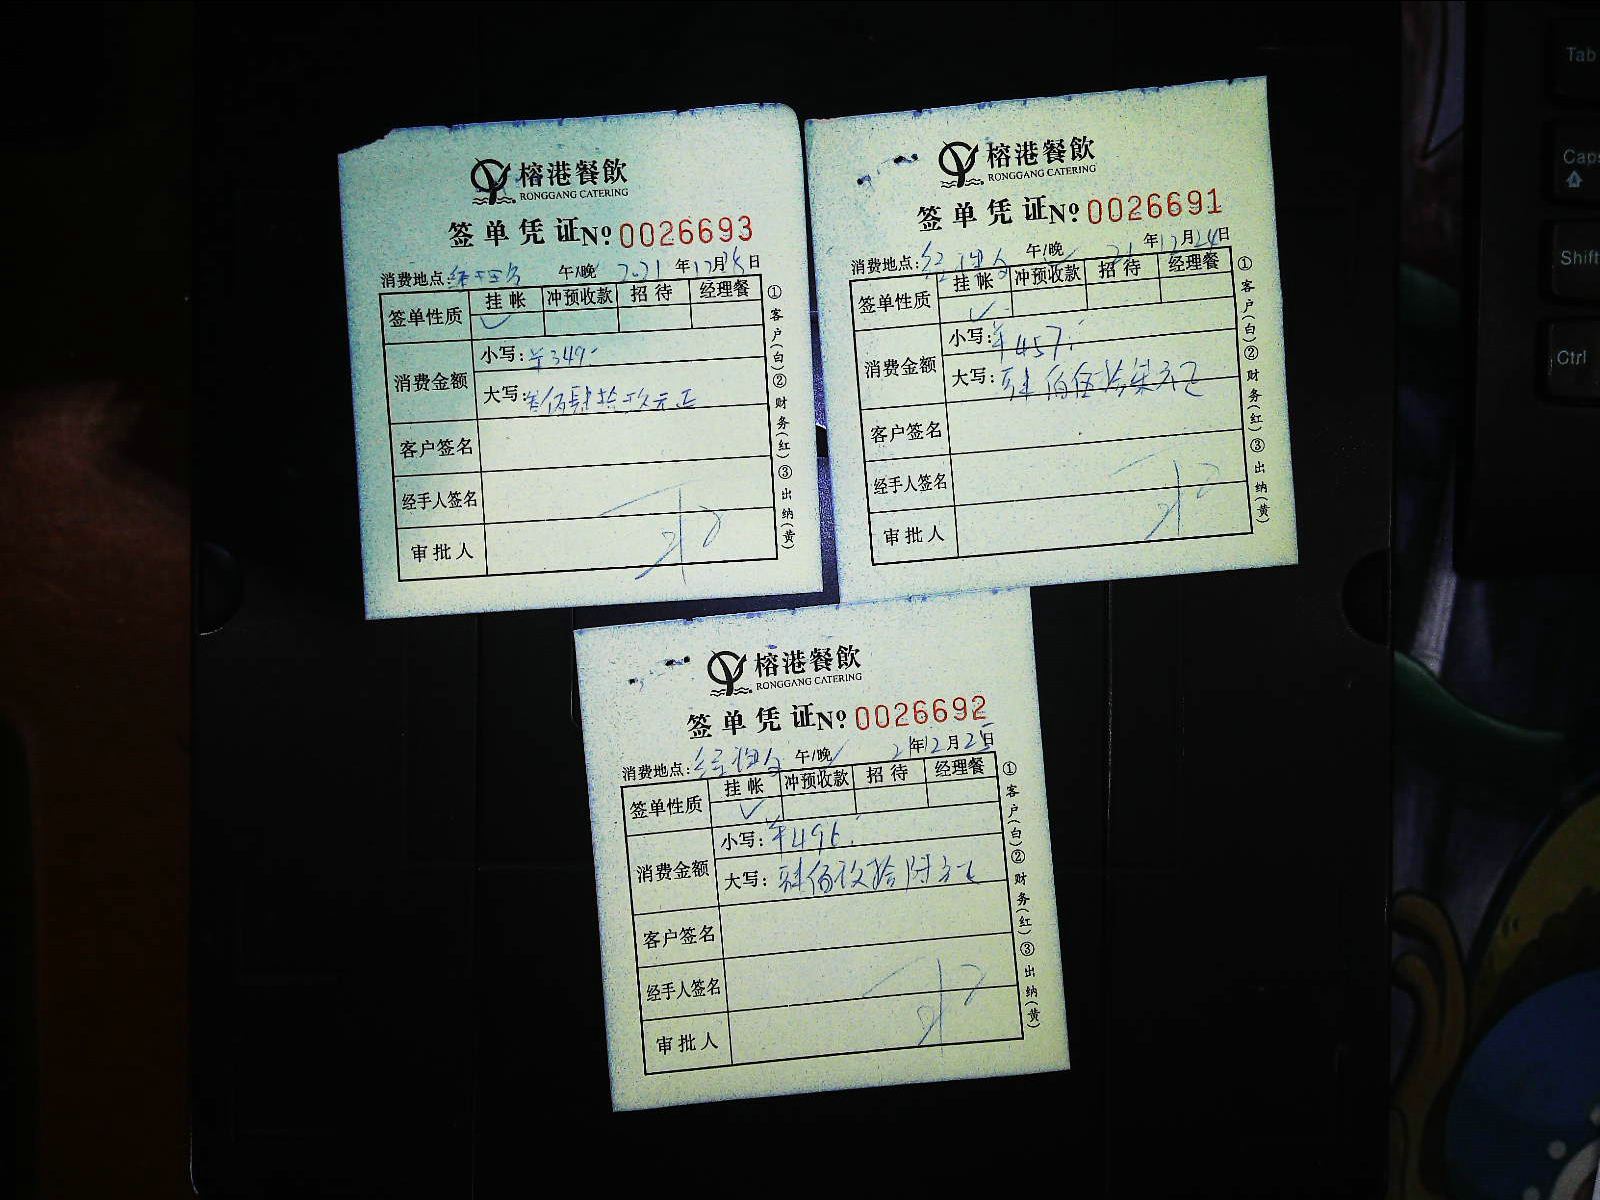 榕港餐飲
RONGGANG CATERING
签单凭证 Nº 0026693
消费地点: 午/晚 2021年12月 日
签单性质 挂帐 冲预收款 招待 经理餐
✓
消费金额 小写:¥349.-
大写:叁佰肆拾玖元正
客户签名
经手人签名
审批人
①客户(白)②财务(红)③出纳(黄)
榕港餐飲
RONGGANG CATERING
签单凭证 Nº 0026691
消费地点: 午/晚✓ 21年12月24日
签单性质 挂帐 冲预收款 招待 经理餐
✓
消费金额 小写:¥457.-
大写:肆佰伍拾柒元正
客户签名
经手人签名
审批人
①客户(白)②财务(红)③出纳(黄)
榕港餐飲
RONGGANG CATERING
签单凭证 Nº 0026692
消费地点: 午/晚✓ 21年12月25日
签单性质 挂帐 冲预收款 招待 经理餐
✓
消费金额 小写:¥496.-
大写:肆佰玖拾陆元正
客户签名
经手人签名
审批人
①客户(白)②财务(红)③出纳(黄)
Tab
Caps
Shift
Ctrl